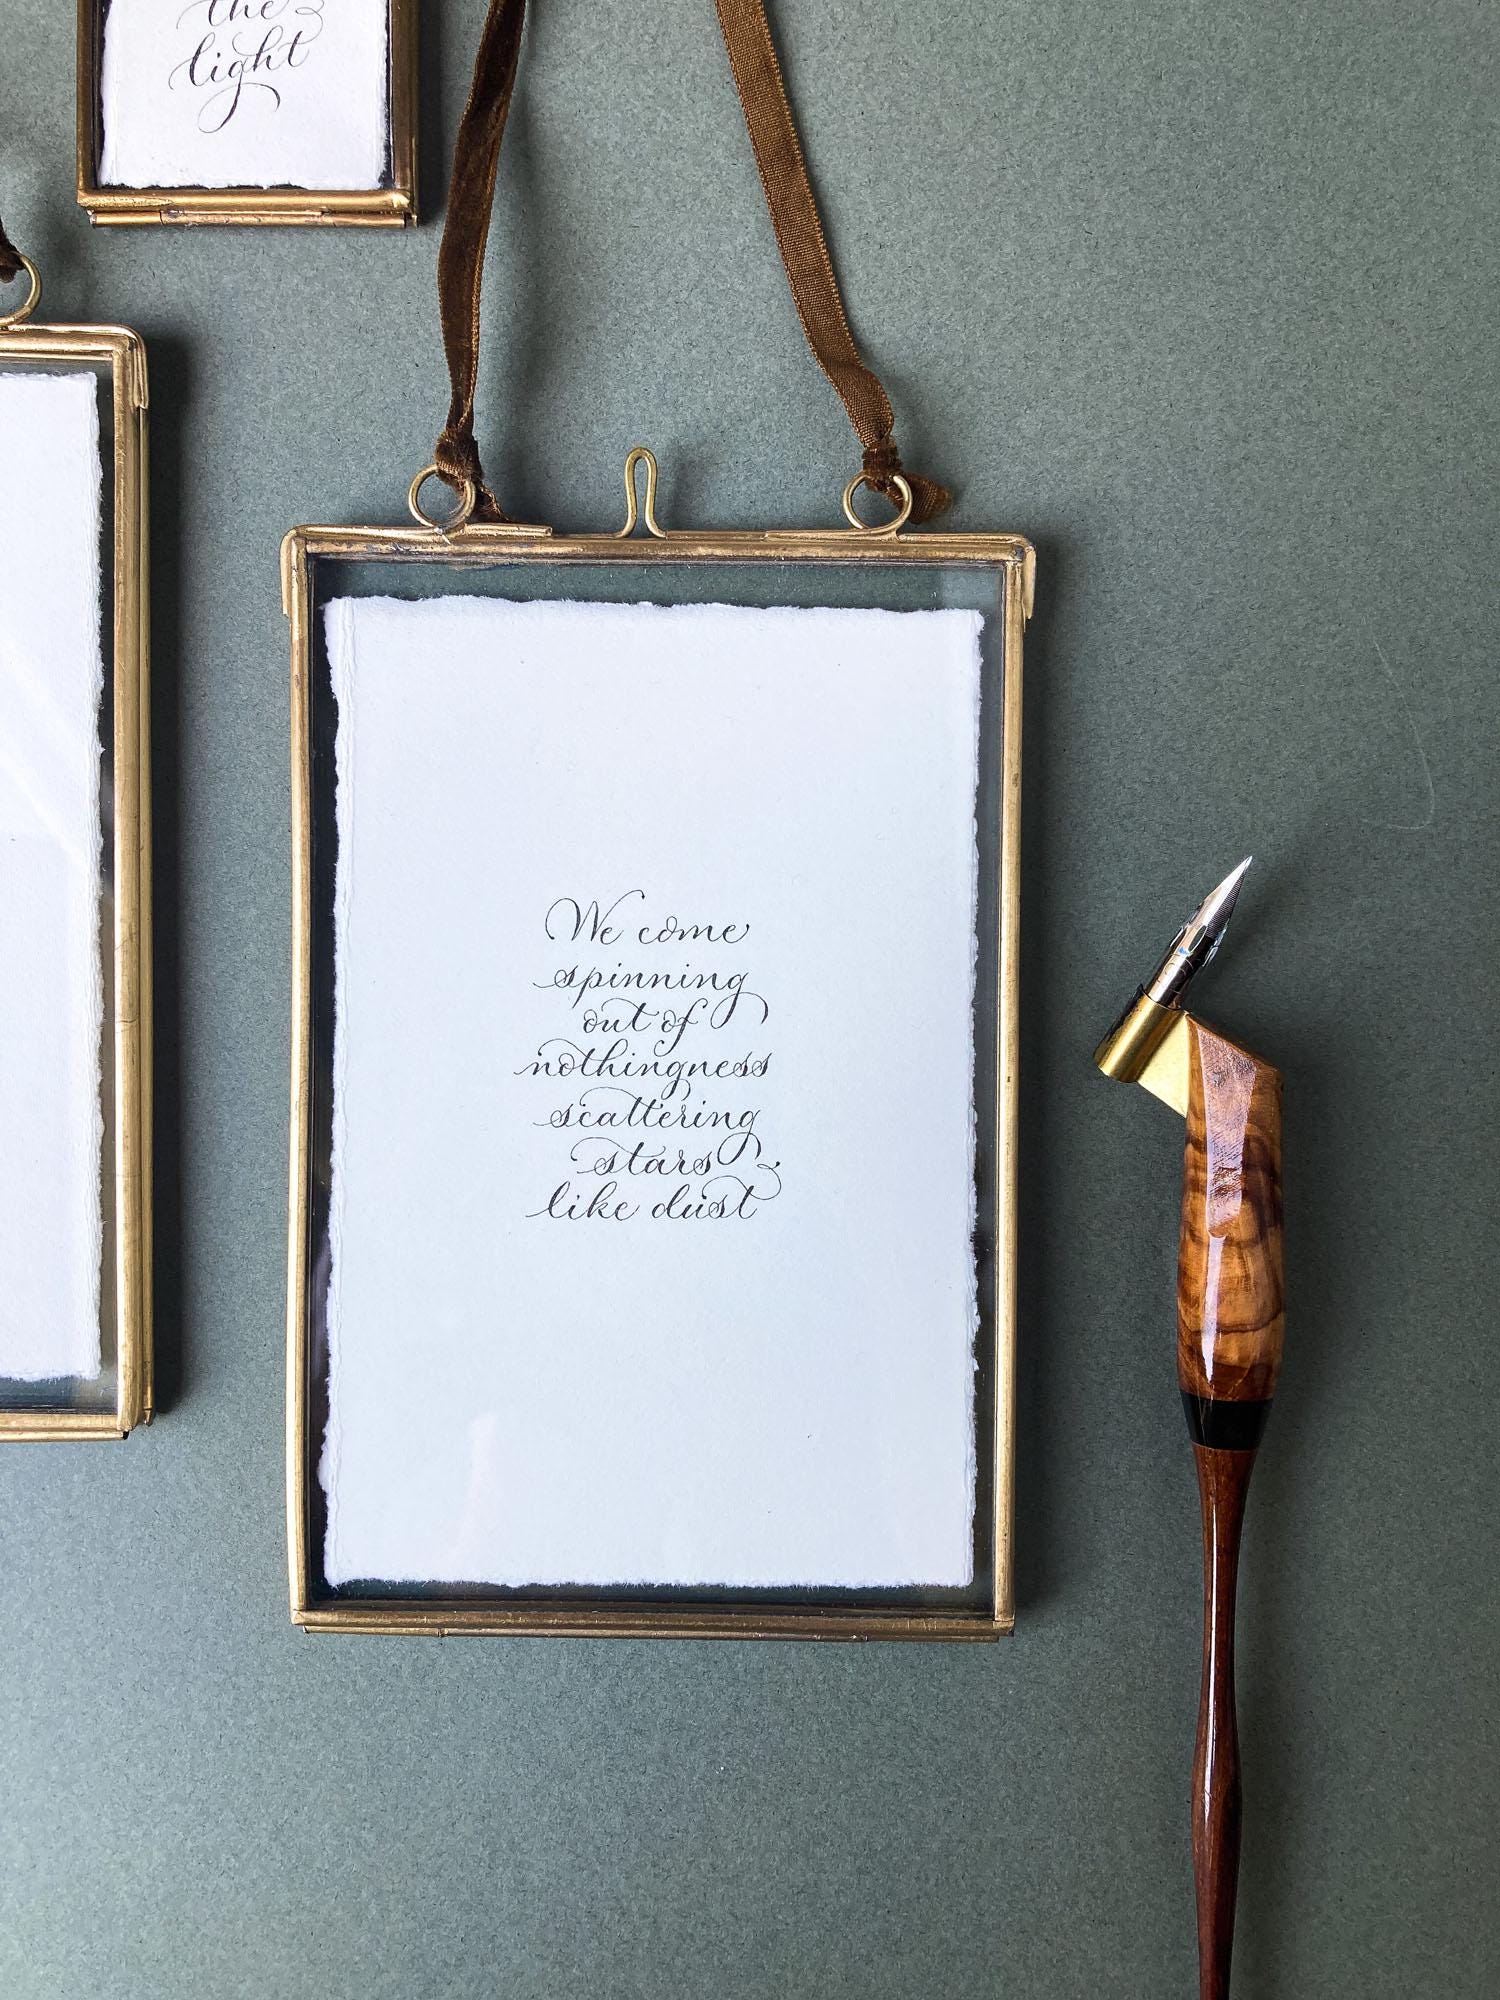 the
light
We come
spinning
out of
nothingness
scattering
stars
like dust